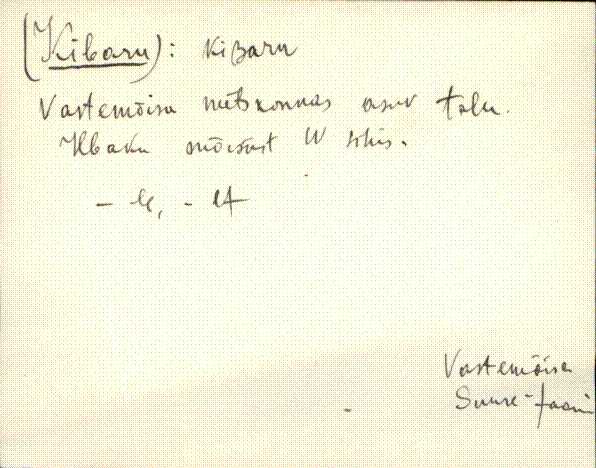 (Kibaru): kibaru
Vastemõisa metskonnas asuv talu.
Ilbaku mõisast W sihis.
- le, - st
Vastemõisa
Suure-Jaani